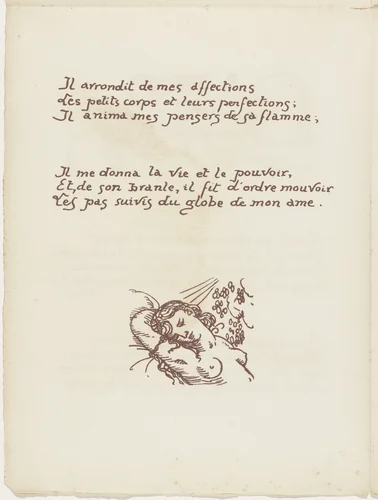 Il arrondit de mes affections
Les petits corps et leurs perfections;
Il anima mes pensers de sa flamme;
Il me donna la vie et le pouvoir,
Et, de son branle, il fit d'ordre mouvoir
Les pas suivis du globe de mon ame.